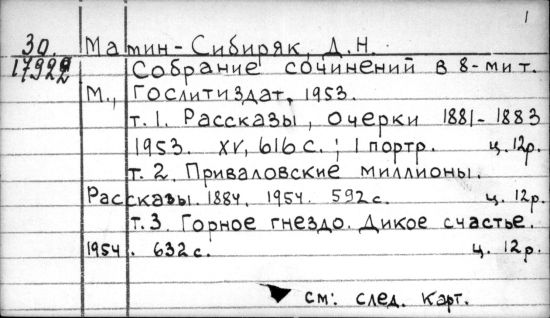 1
30. Мамин-Сибиряк, Д.Н.
17922 Собрание сочинений в 8-ми т.
М., Гослитиздат, 1953.
т.1. Рассказы, очерки 1881-1883
1953. XV, 616 с.; 1 портр. ц. 12р.
т. 2. Приваловские миллионы.
Рассказы. 1884. 1954. 592 с. ц. 12р.
т.3. Горное гнездо. Дикое счастье.
1954. 632 с. ц. 12р.
см: след. карт.